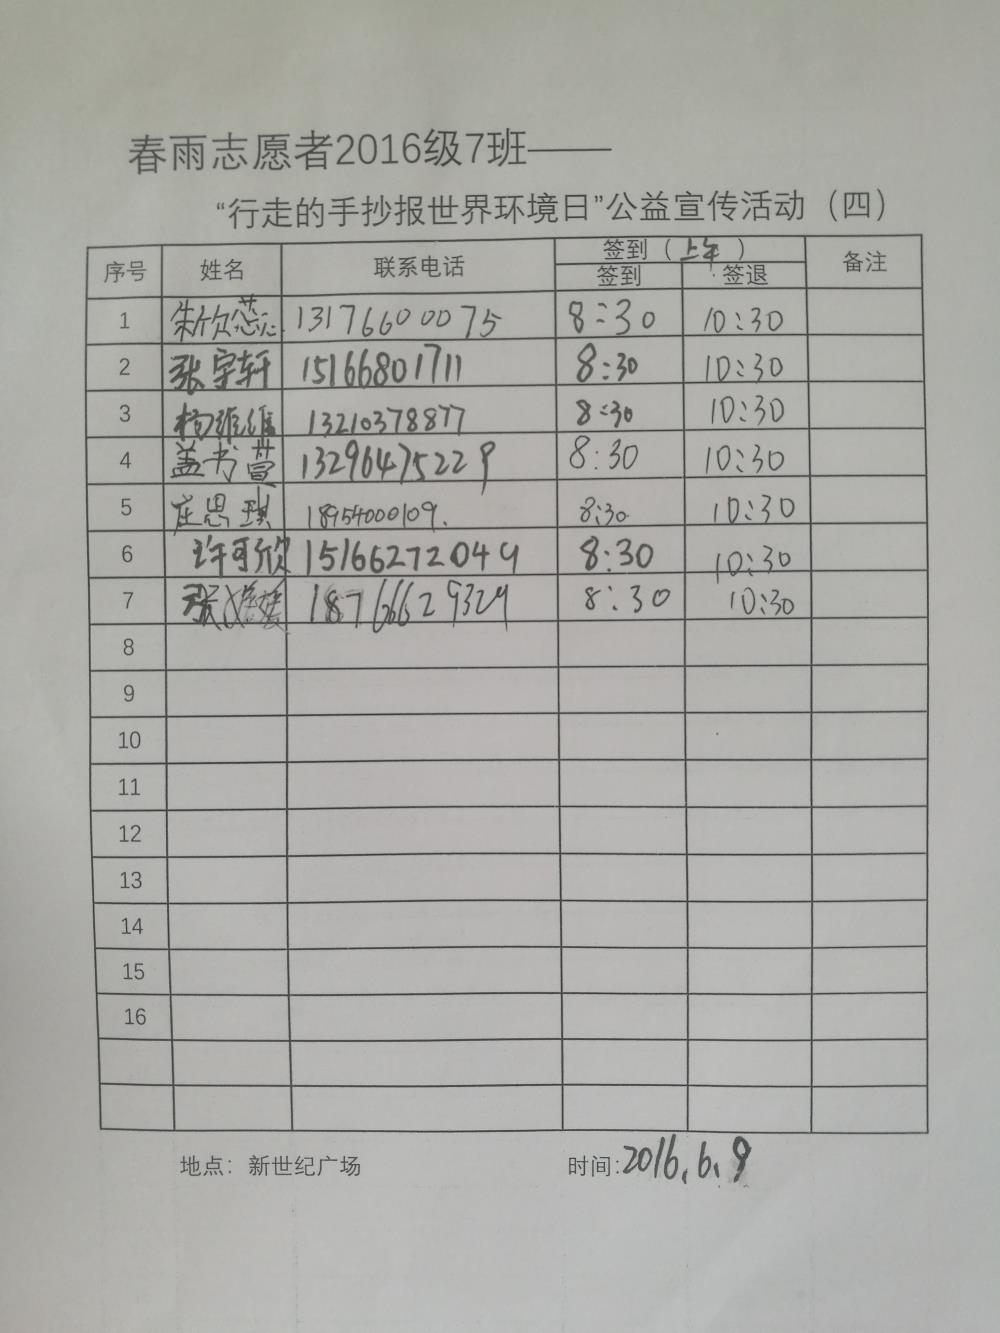 春雨志愿者2016级7班——
“行走的手抄报世界环境日”公益宣传活动（四）
序号 姓名 联系电话 签到（上午） 备注
签到 签退
1 朱欣蕊 13176600075 8:30 10:30
2 张宇轩 15166801711 8:30 10:30
3 杨维维 13210378877 8:30 10:30
4 盖书萱 13296475229 8:30 10:30
5 庄思琪 18954000109. 8:30 10:30
6 许可欣 15166272049 8:30 10:30
7 张 18766629329 8:30 10:30
8
9
10
11
12
13
14
15
16
地点：新世纪广场 时间:2016.6.9